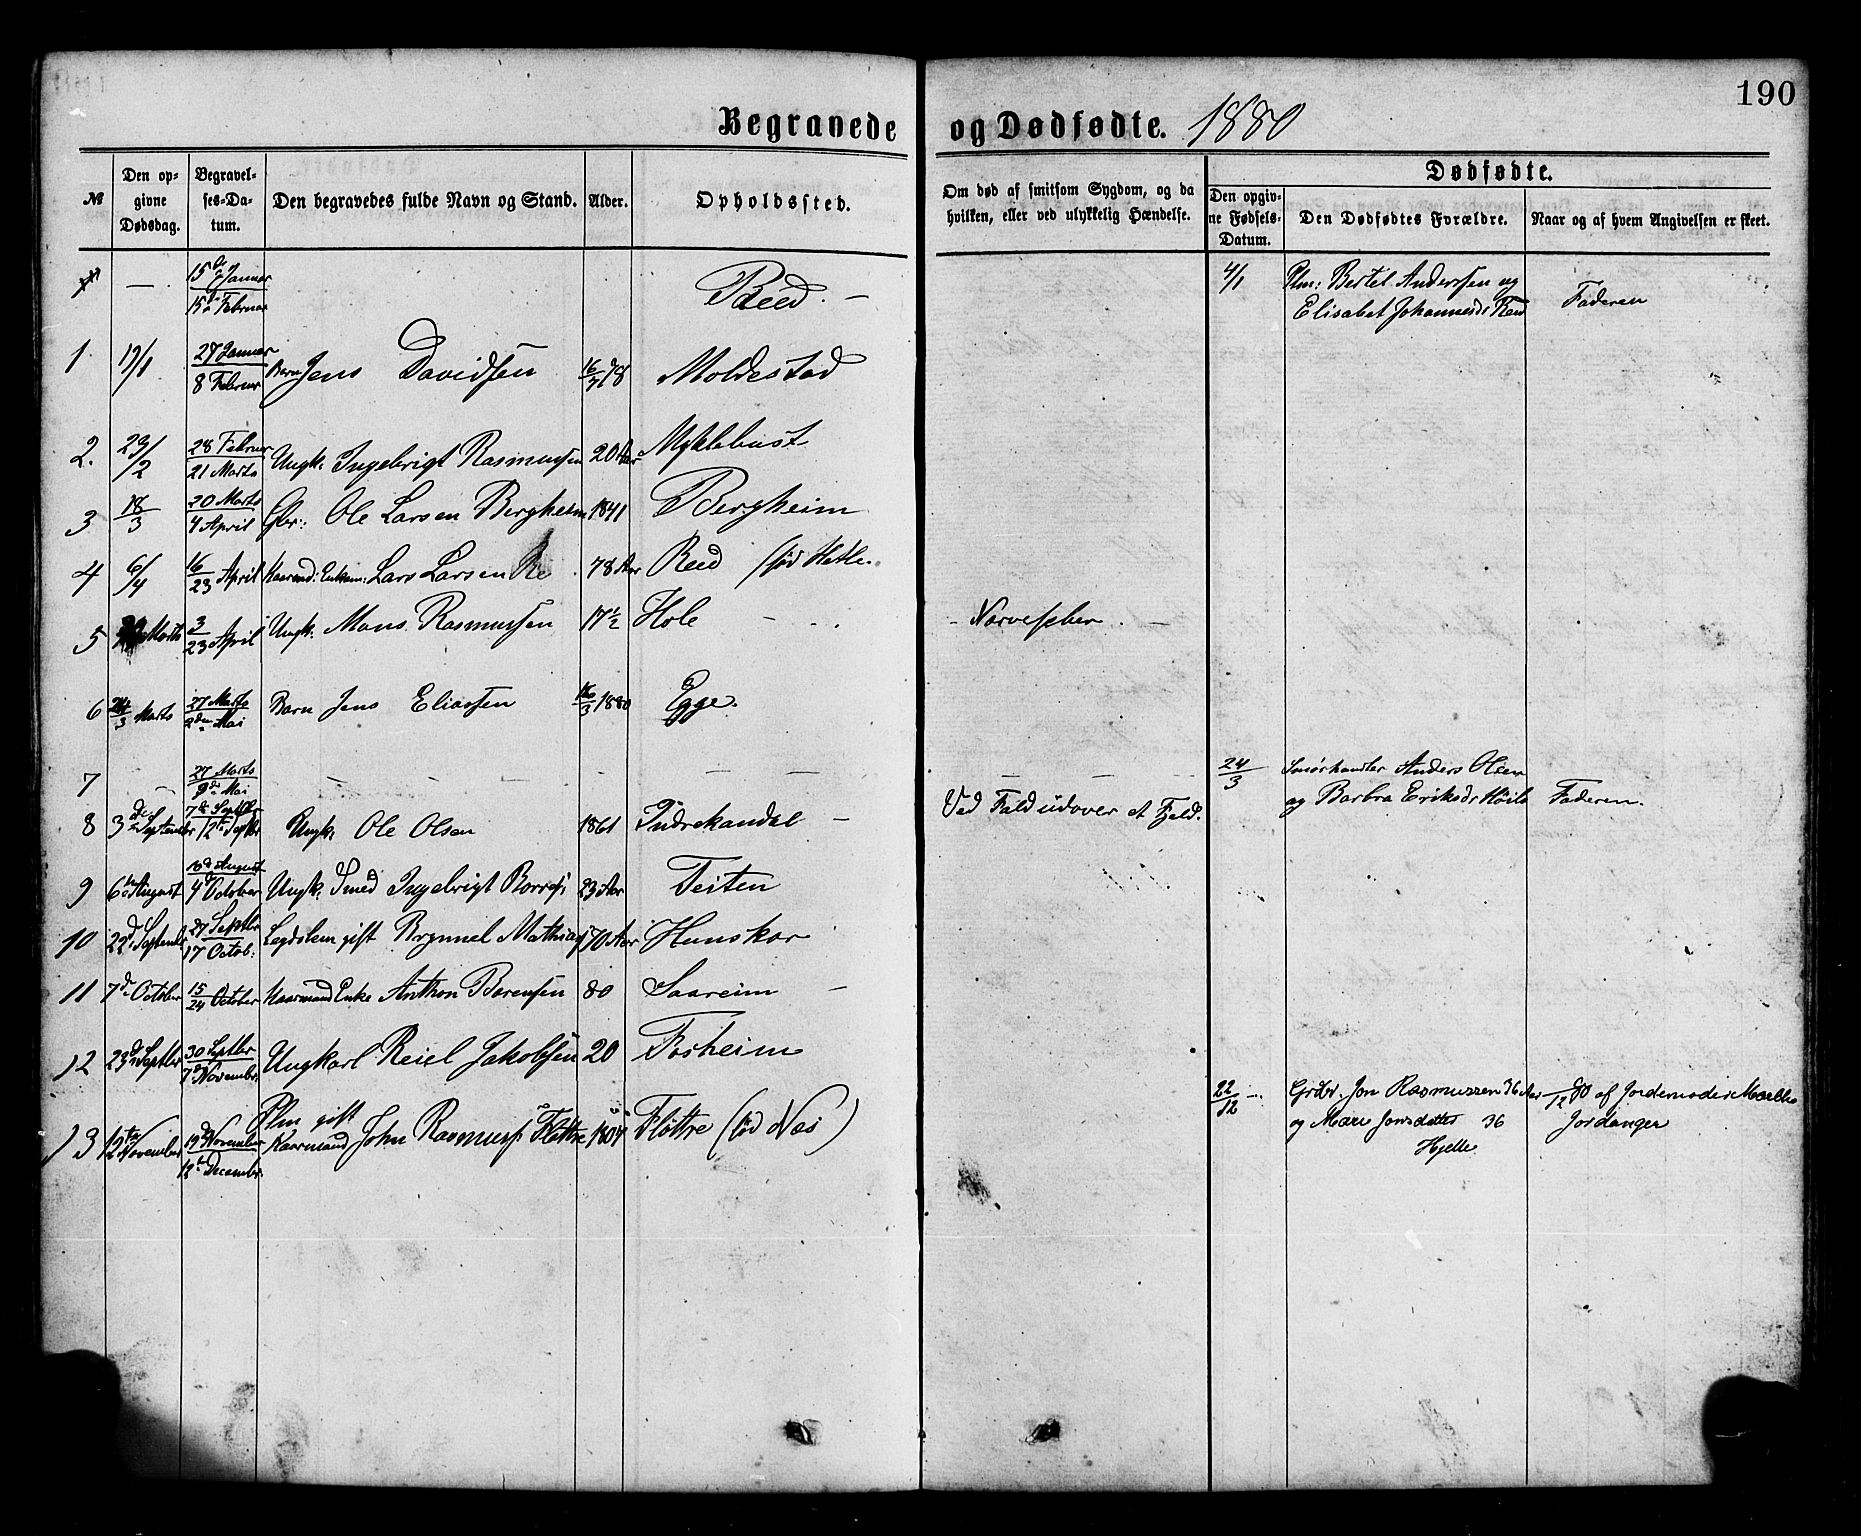 190
Begravede og Dødfødte. 1880
№
Den opgivne Dødsdag.
Begravelses-Datum.
Den begravedes fulde Navn og Stand.
Alder.
Opholdssted.
Om død af smitsom Sygdom, og da hvilken, eller ved ulykkelig Hændelse.
Dødfødte.
Den opgivne Fødsels-Datum.
Den Dødfødtes Forældre.
Naar og af hvem Angivelsen er skeet.
— 15de Januar / 15de Februar Reed. — 4/1 Plm: Bertel Anderssen og
Elisabet Johannesdr Reed Faderen
1 17/1 27 Januar / 8 Februar Barn Jens Davidsen 16/7 78 Moldestad
2. 23/2 28 Februar / 21 Marts Ungk: Ingebrigt Rasmussen 20 Aar Myklebust
3 18/3 20 Marts / 4 April Gbr: Ole Larsen Bergheim 1841 Bergheim
4 6/4 16/23 April Kaarmd: Enkem: Lars Larsen Re 78 Aar Reed (fød Hetle
5 Marts 3/23 April Ungk: Mons Rasmussen 17½ Hole — Nervefeber —
6 24/3 Marts 27 Marts / 2den Mai Barn Jens Eliassen 16/3 1880 Egge.
7 — 27 Marts / 9de Mai — — — — 24/3 Smørhandler Anders Olsen
og Barbra Eriksdr Høilo Faderen.
8 3de September 7de Septbr / 12te Septbr Ungk: Ole Olsen 1861 Indrekandal — Ved Fald udover et Fjeld.
9 6te August 10de August / 4de October Ungk: Smed Ingebrigt Borres: 23 Aar Teiten
10 22de September 27 Septbr / 17 Octob: Legdslem gift Brynnel Mathias 70 Aar Hunskar
11 7de October 15/24 October Kaarmand Enke Anthon Børensen 80 Saareim —
12 23de Septbr 30 Septbr / 7de Novembr: Ungkarl Reiel Jakobsen 20 Fosheim
22/12 — Grdbr. Jon Rasmussen 36 Aar
og Mari Jonsdatter 36
Hjelle
/12 80 af Jordemoder
Jordanger
13 12te November 19de November / 12te Decembr. Plm gift
Kaarmand John Rasmuss: Fløttre 1804 Fløttre (fød Nos)